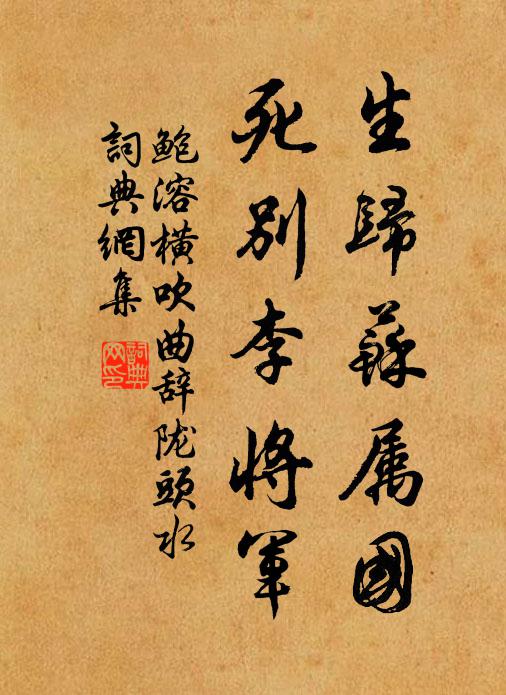 生歸蘇属國
死別李將軍
鲍溶橫吹曲辞陇頭水
詞典網集
詞典網印